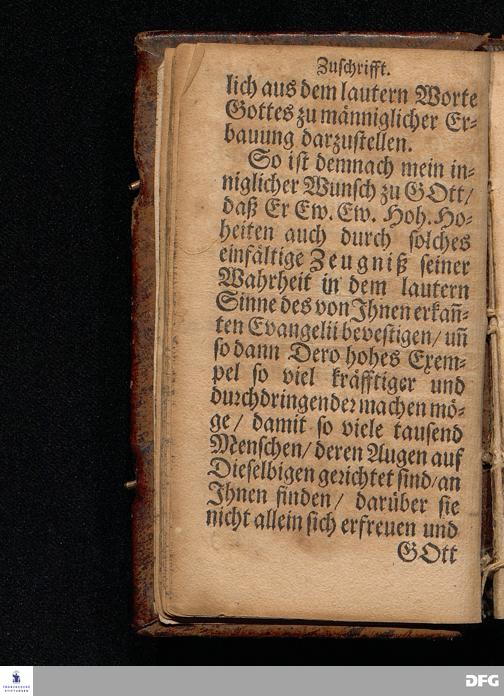 Zuschrifft.
lich aus dem lautern Worte
Gottes zu männiglicher Er-
bauung darzustellen.
So ist demnach mein in-
niglicher Wunsch zu GOtt/
daß Er Ew. Ew. Hoh. Ho-
heiten auch durch solches
einfältige Zeugniß seiner
Wahrheit in dem lautern
Sinne des von Ihnen erkañ-
ten Evangelii bevestigen/ uñ
so dann Dero hohes Exem-
pel so viel kräfftiger und
durchdringender machen mö-
ge/ damit so viele tausend
Menschen/ deren Augen auf
Dieselbigen gerichtet sind/ an
Ihnen finden/ darüber sie
nicht allein sich erfreuen und
GOtt
FRANCKESCHE
STIFTUNGEN
DFG